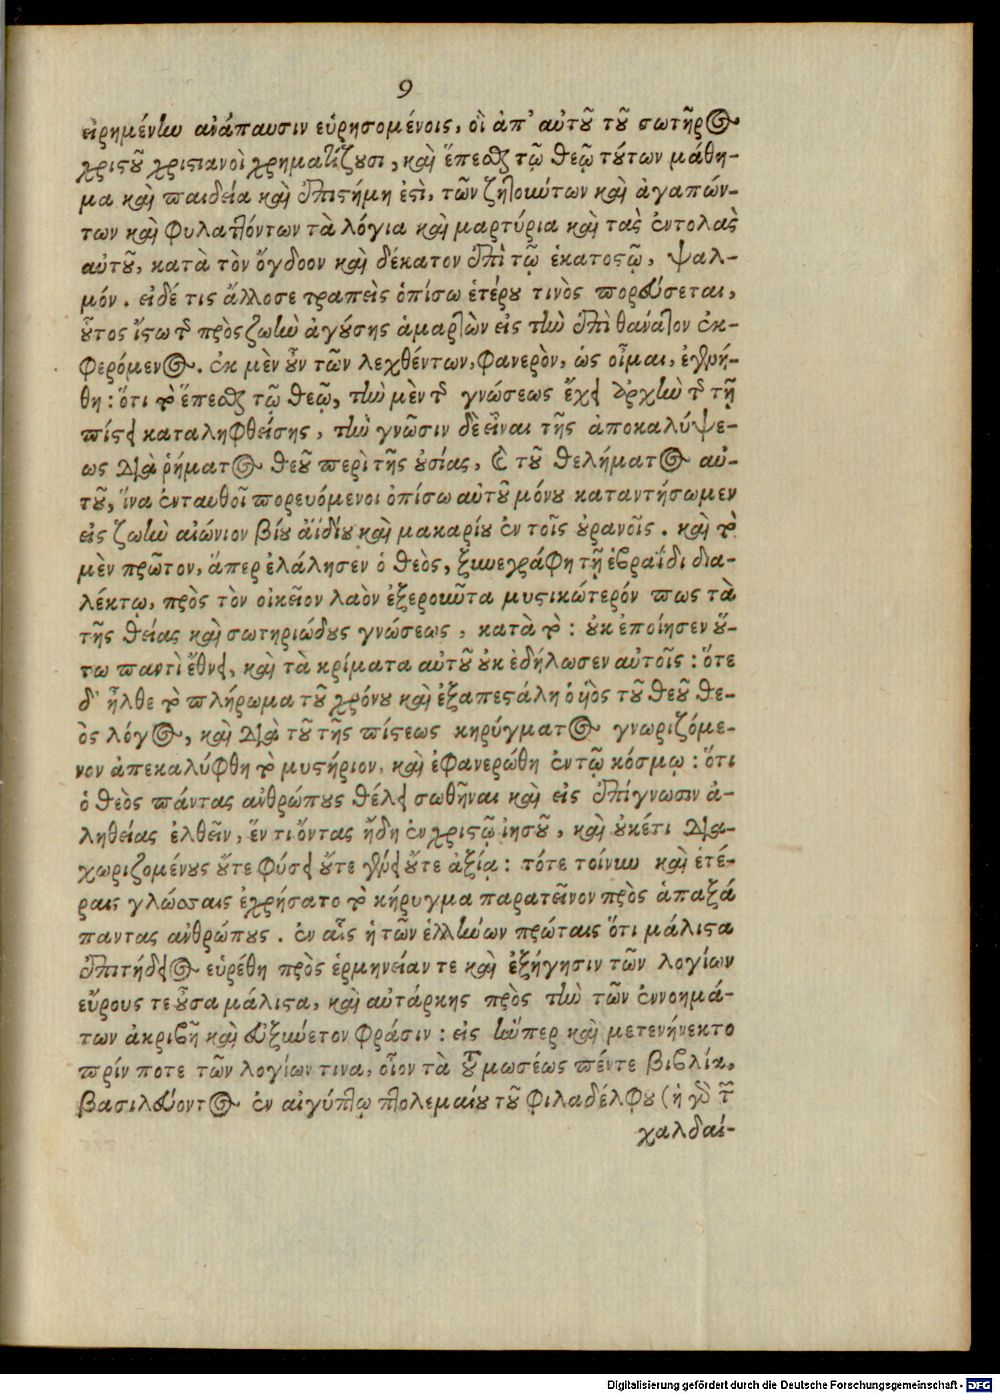 9
εἰρημένην ἀνάπαυσιν εὑρησομένοις, οἳ ἀπ' αὐτοῦ τοῦ σωτῆρος
χριστοῦ χριστιανοὶ χρηματίζουσι, καὶ ἕπεσθαι τῷ θεῷ τούτων μάθη-
μα καὶ παιδεία καὶ ἐπιστήμη ἐστὶ, τῶν ζητούντων καὶ ἀγαπών-
των καὶ φυλαττόντων τὰ λόγια καὶ μαρτύρια καὶ τὰς ἐντολὰς
αὐτοῦ, κατὰ τὸν ὄγδοον καὶ δέκατον ἐπὶ τῷ ἑκατοστῷ, ψαλ-
μόν. εἰ δέ τις ἄλλοσε τραπεὶς ὀπίσω ἑτέρου τινὸς πορεύσεται,
οὗτος ἴστω τὸ πρὸς ζωὴν ἀγούσης ἁμαρτὼν εἰς τὴν ἐπὶ θάνατον ἐκ-
φερόμενος. ἐκ μὲν οὖν τῶν λεχθέντων, φανερὸν, ὡς οἶμαι, ἐγενή-
θη: ὅτι τὸ ἕπεσθαι τῷ θεῷ, τὴν μὲν τῆς γνώσεως ἔχει ἀρχὴν τῆς τῇ
πίστει καταληφθείσης, τὴν γνῶσιν δὲ εἶναι τῆς ἀποκαλύψε-
ως διὰ ῥήματος θεοῦ περὶ τῆς οὐσίας, καὶ τοῦ θελήματος αὐ-
τοῦ, ἵνα ἐνταυθοῖ πορευόμενοι ὀπίσω αὐτοῦ μόνου καταντήσωμεν
εἰς ζωὴν αἰώνιον βίου ἀϊδίου καὶ μακαρίου ἐν τοῖς οὐρανοῖς. καὶ τὸ
μὲν πρῶτον, ἅπερ ἐλάλησεν ὁ θεὸς, ξυνεγράφη τῇ ἑβραΐδι δια-
λέκτῳ, πρὸς τὸν οἰκεῖον λαὸν ἐξερουῶτα μυστικώτερόν πως τὰ
τῆς θείας καὶ σωτηριώδους γνώσεως, κατὰ τὸ: οὐκ ἐποίησεν οὕ-
τω παντὶ ἔθνει, καὶ τὰ κρίματα αὐτοῦ οὐκ ἐδήλωσεν αὐτοῖς: ὅτε
δ' ἦλθε τὸ πλήρωμα τοῦ χρόνου καὶ ἐξαπεστάλη ὁ υἱὸς τοῦ θεοῦ θε-
ὸς λόγος, καὶ διὰ τοῦ τῆς πίστεως κηρύγματος γνωριζόμε-
νον ἀπεκαλύφθη τὸ μυστήριον, καὶ ἐφανερώθη ἐν τῷ κόσμῳ: ὅτι
ὁ θεὸς πάντας ἀνθρώπους θέλει σωθῆναι καὶ εἰς ἐπίγνωσιν ἀ-
ληθείας ἐλθεῖν, ἕν τι ὄντας ἤδη ἐν χριστῷ ἰησοῦ, καὶ οὐκέτι δια-
χωριζομένους οὔτε φύσει οὔτε γένει οὔτε ἀξίᾳ: τότε τοίνυν καὶ ἑτέ-
ραις γλώσσαις ἐχρήσατο τὸ κήρυγμα παρατεῖνον πρὸς ἁπαξά
παντας ἀνθρώπους. ἐν αἷς ἡ τῶν ἑλλήνων πρώταις ὅτι μάλιστα
ἐπιτήδειος εὑρέθη πρὸς ἑρμηνείαν τε καὶ ἐξήγησιν τῶν λογίων
εὔρους τε οὖσα μάλιστα, καὶ αὐτάρκης πρὸς τὴν τῶν ἐννοημά-
των ἀκριβῆ καὶ εὐξύνετον φράσιν: εἰς ἥνπερ καὶ μετενήνεκτο
πρίν ποτε τῶν λογίων τινα, οἷον τὰ τοῦ μωσέως πέντε βιβλία,
βασιλεύοντος ἐν αἰγύπτῳ πτολεμαίου τοῦ φιλαδέλφου (ἡ γὰρ τῶν
χαλδαί-
Digitalisierung gefördert durch die Deutsche Forschungsgemeinschaft - DFG